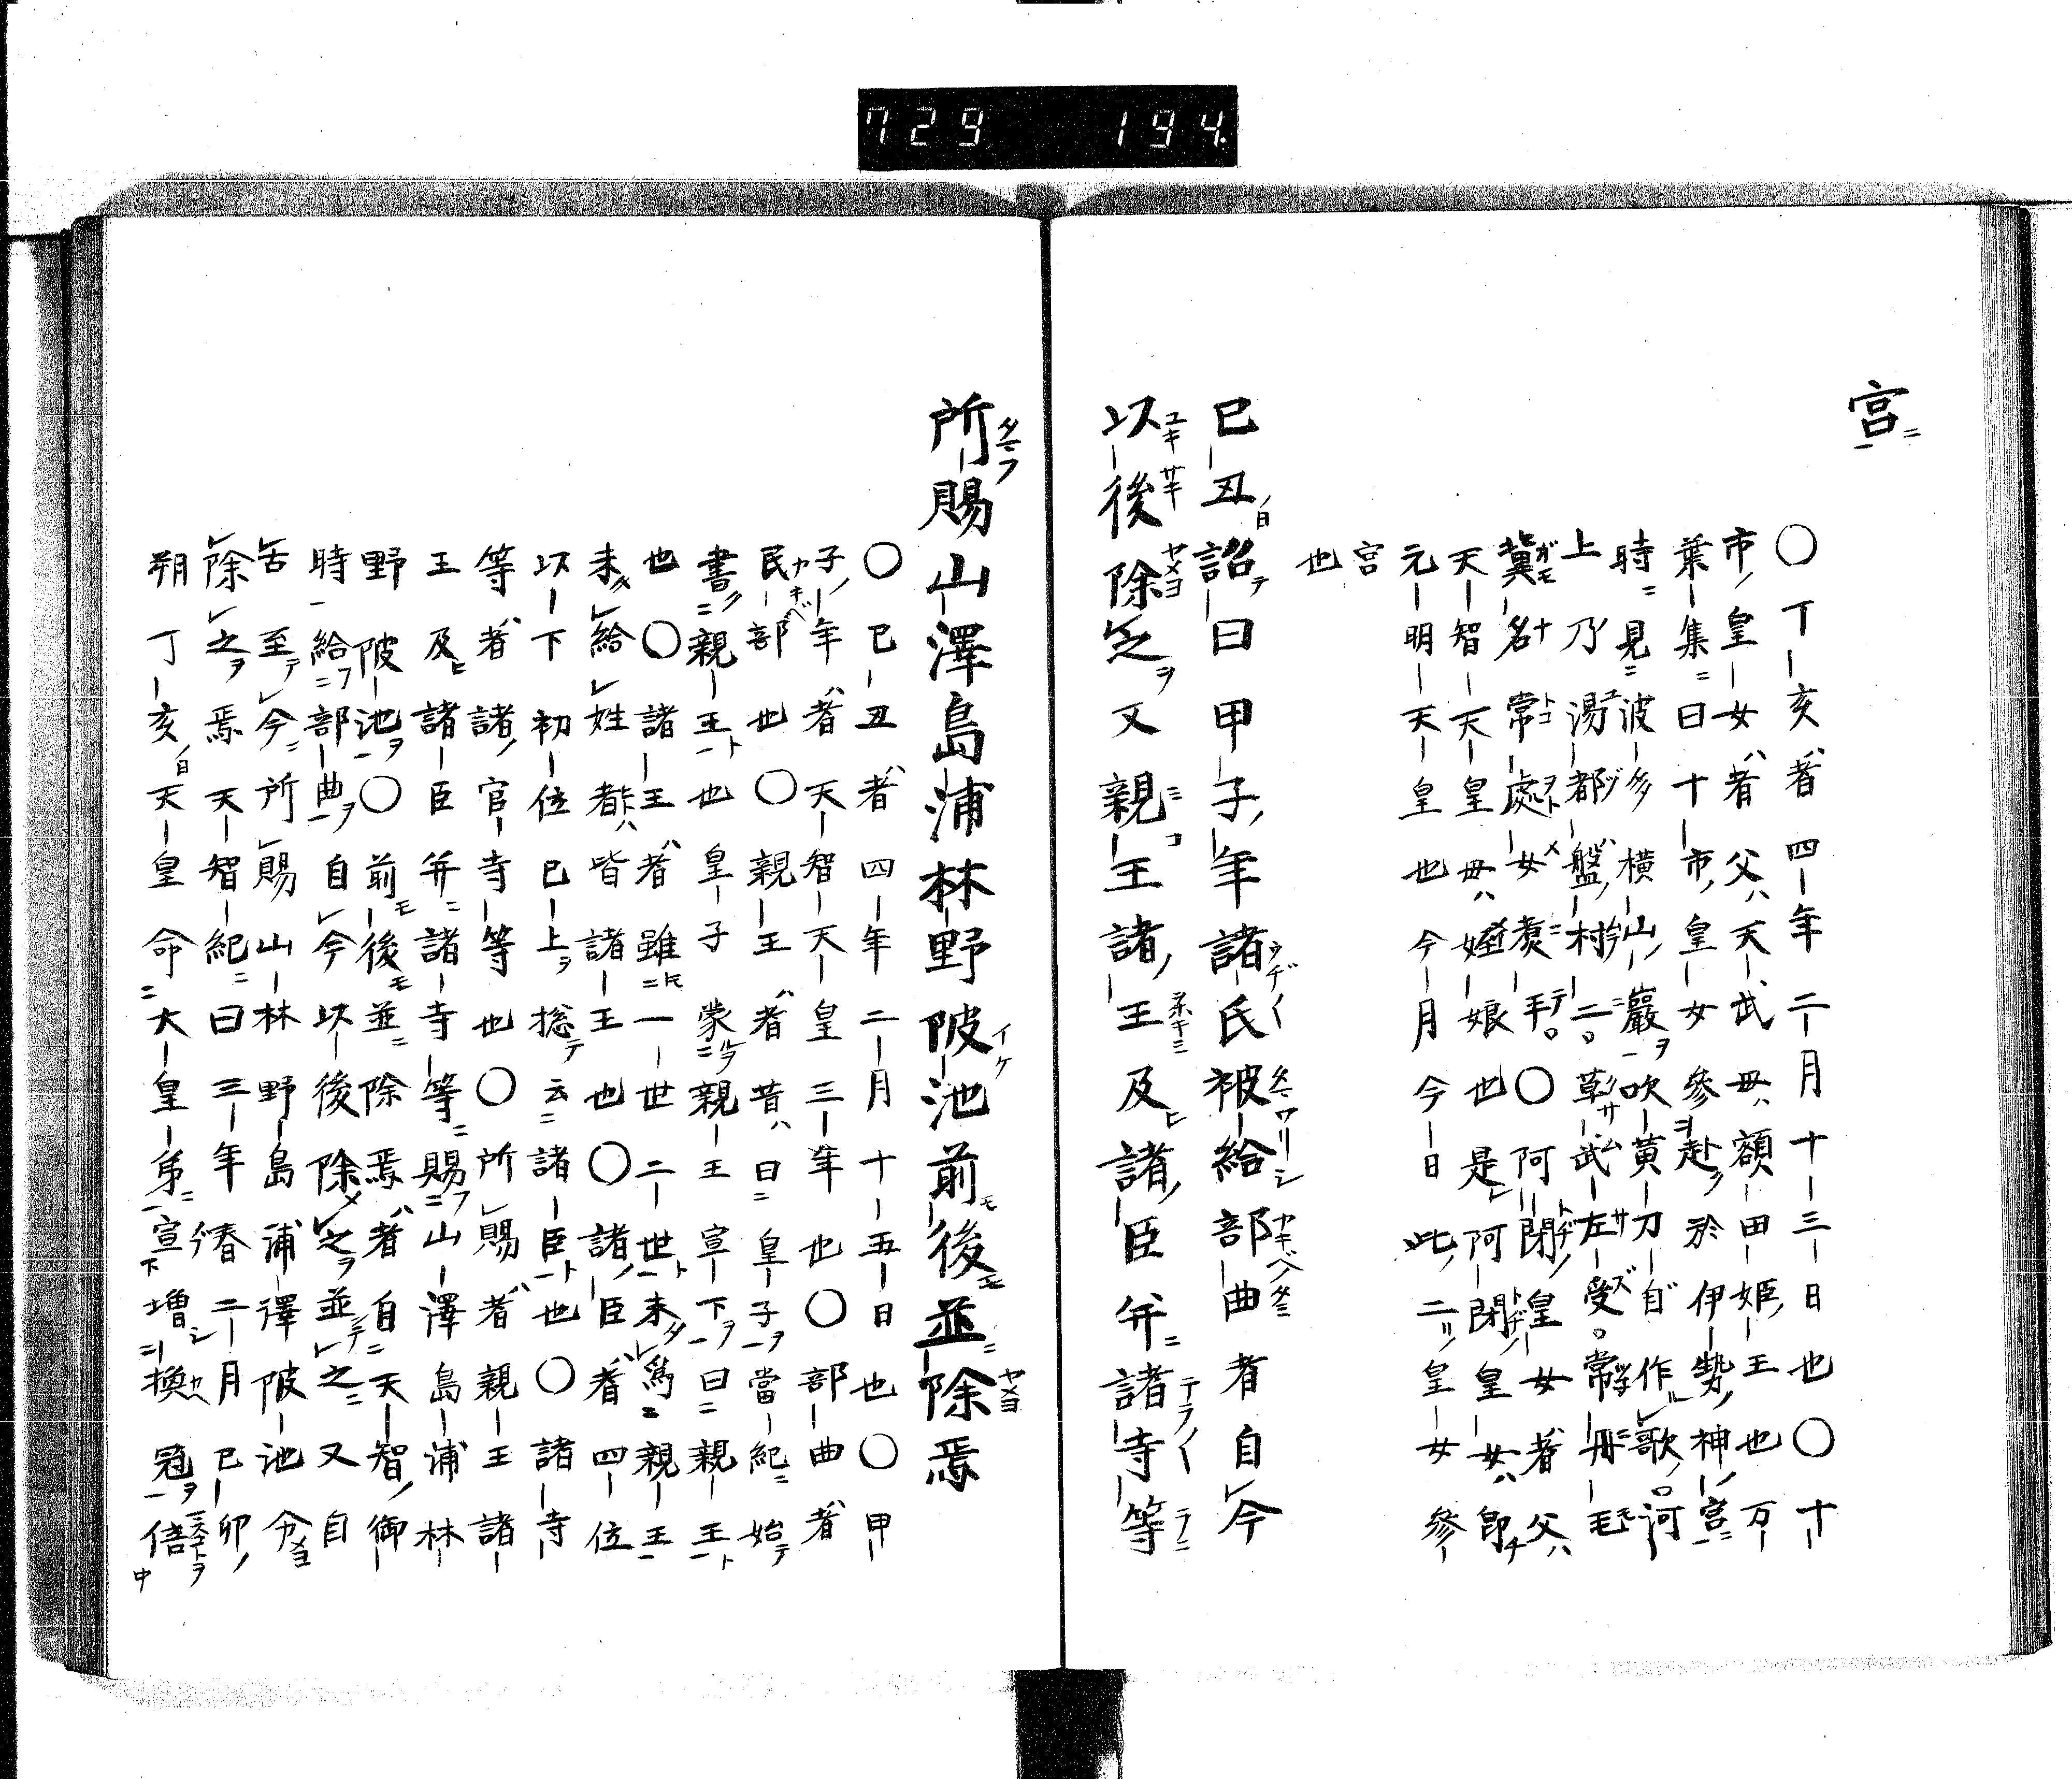 729 194
宮
〇丁亥者四年二月十三日也〇十
市皇女者父天武母額田姫王也万
葉集曰十市皇女参赴於伊勢神宮
時見波多横山巌吹黄刀自作歌河
上乃湯都盤村二草武左受常丹毛
冀名常處女煑手〇阿閉皇女者父
天智天皇母姪娘也是阿閉皇女即
元明天皇也今月今日此二皇女參
宮
也
已丑詔曰甲子年諸氏被給部曲者自今
以後除之又親王諸王及諸臣并諸寺等
所賜山澤島浦林野陂池前後並除焉
〇已丑者四年二月十五日也〇甲
子年者天智天皇三年也〇部曲者
民部也〇親王者昔曰皇子當紀始
書親王也皇子蒙親王宣下曰親王
也〇諸王者雖一世二世未爲親王
未給姓者皆諸王也〇諸臣者四位
以下初位已上捴云諸臣也〇諸寺
等者諸官寺等也〇所賜者親王諸
王及諸臣并諸寺等賜山澤島浦林
野陂池〇前後並除焉者自天智御
時給部曲自今以後除之並之又自
舌至今所賜山林野島浦澤陂池令
除之焉天智紀曰三年春二月已卯
朔丁亥天皇命大皇弟宣増換冠倍